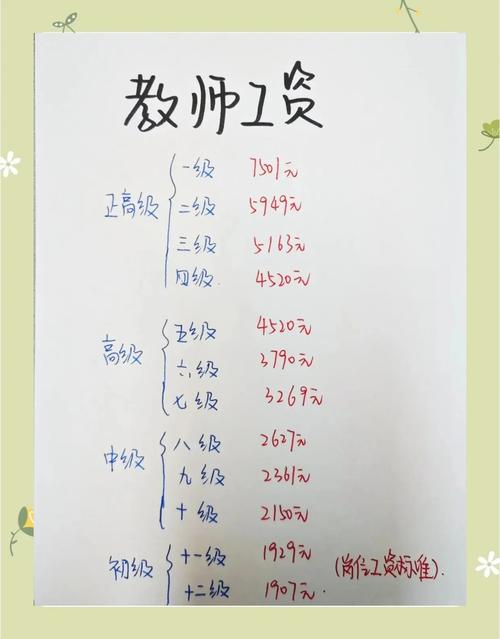 教师工资
正高级
一级 7501元
二级 5949元
三级 5163元
四级 4520元
高级
五级 4520元
六级 3790元
七级 3269元
中级
八级 2627元
九级 2361元
十级 2150元
初级
十一级 1929元
十二级 1907元.
(岗位工资标准).